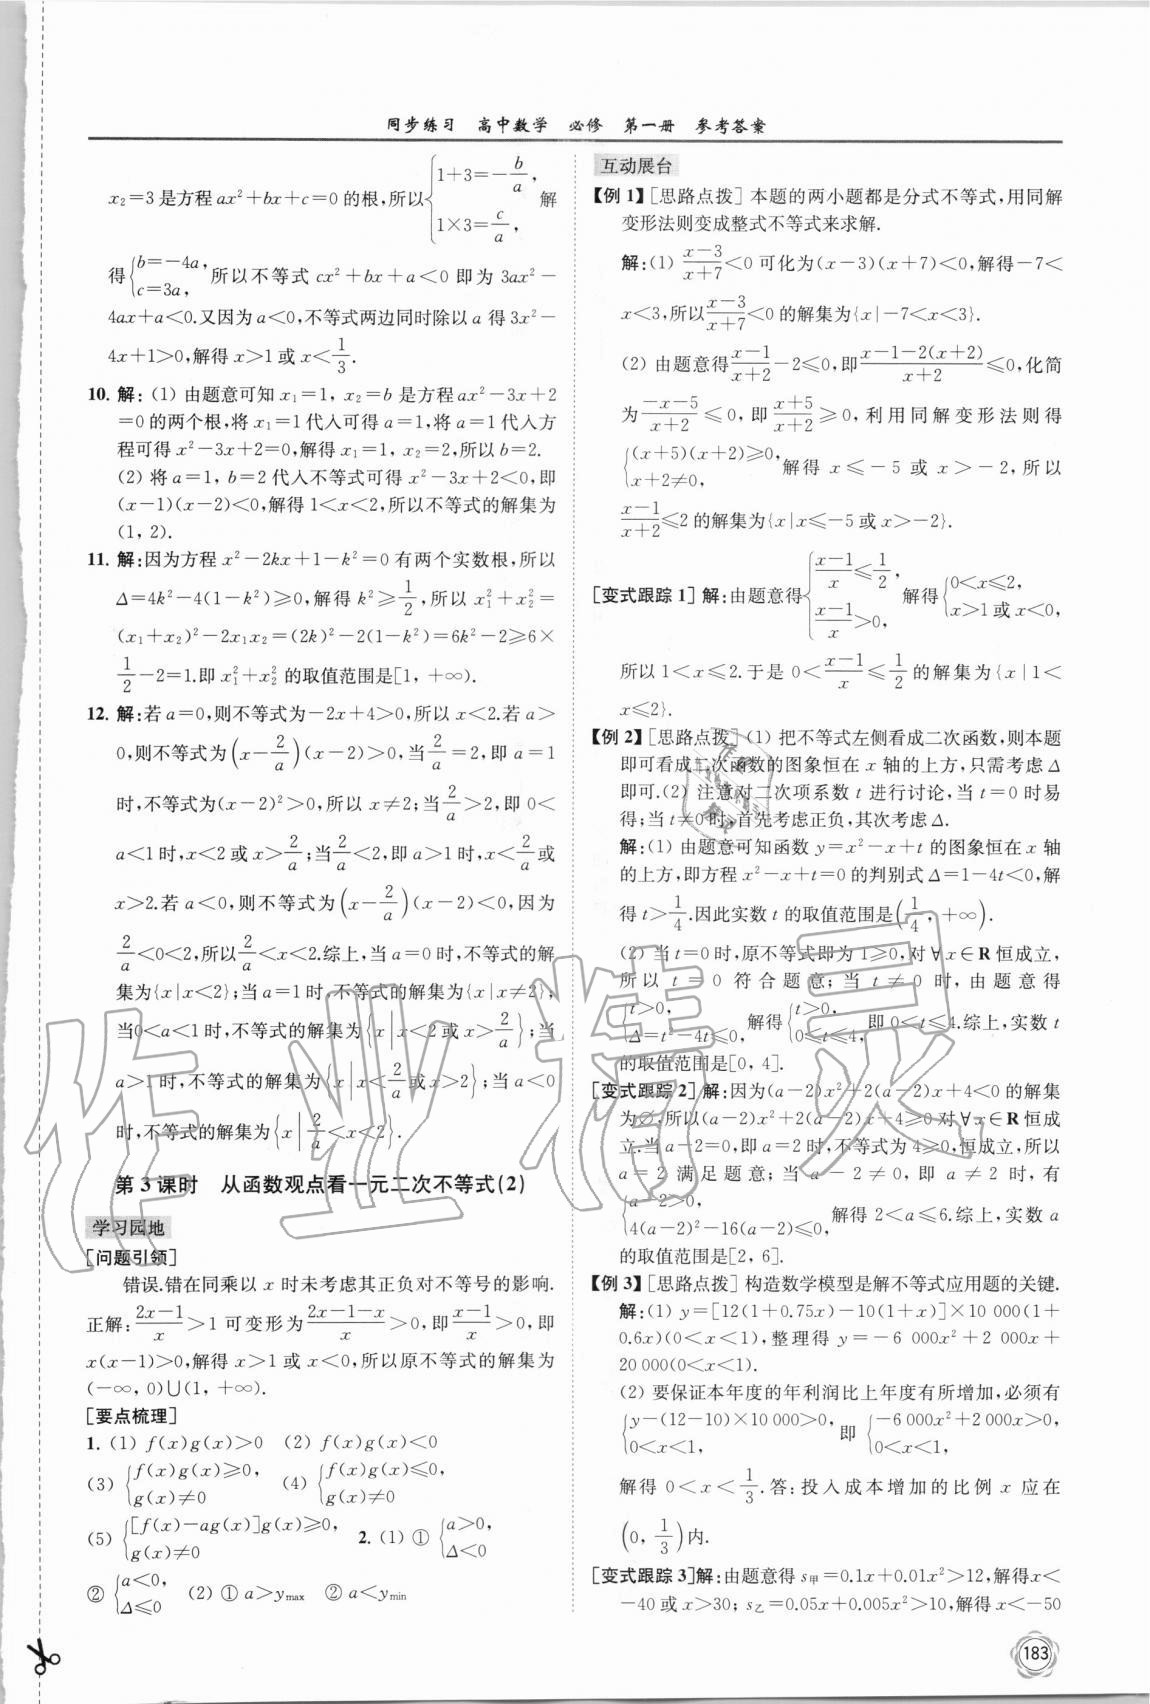 同步练习 高中数学 必修 第一册 参考答案
x₂=3是方程ax²+bx+c=0的根,所以{1+3=-b/a, 1×3=c/a, 解
得{b=-4a, c=3a, 所以不等式cx²+bx+a<0即为3ax²-
4ax+a<0.又因为a<0,不等式两边同时除以a得3x²-
4x+1>0,解得x>1或x<1/3.
10. 解:(1) 由题意可知x₁=1, x₂=b是方程ax²-3x+2
=0的两个根,将x₁=1代入可得a=1,将a=1代入方
程可得x²-3x+2=0,解得x₁=1, x₂=2,所以b=2.
(2) 将a=1, b=2代入不等式可得x²-3x+2<0,即
(x-1)(x-2)<0,解得1<x<2,所以不等式的解集为
(1, 2).
11. 解:因为方程x²-2kx+1-k²=0有两个实数根,所以
Δ=4k²-4(1-k²)≥0,解得k²≥1/2,所以x₁²+x₂²=
(x₁+x₂)²-2x₁x₂=(2k)²-2(1-k²)=6k²-2≥6×
1/2-2=1.即x₁²+x₂²的取值范围是[1, +∞).
12. 解:若a=0,则不等式为-2x+4>0,所以x<2.若a>
0,则不等式为(x-2/a)(x-2)>0,当2/a=2,即a=1
时,不等式为(x-2)²>0,所以x≠2;当2/a>2,即0<
a<1时,x<2或x>2/a;当2/a<2,即a>1时,x<2/a或
x>2.若a<0,则不等式为(x-2/a)(x-2)<0,因为
2/a<0<2,所以2/a<x<2.综上,当a=0时,不等式的解
集为{x|x<2};当a=1时,不等式的解集为{x|x≠2};
当0<a<1时,不等式的解集为{x|x<2或x>2/a};当
a>1时,不等式的解集为{x|x<2/a或x>2};当a<0
时,不等式的解集为{x|2/a<x<2}.
第3课时 从函数观点看一元二次不等式(2)
学习园地
[问题引领]
错误.错在同乘以x时未考虑其正负对不等号的影响.
正解:(2x-1)/x>1可变形为(2x-1-x)/x>0,即(x-1)/x>0,即
x(x-1)>0,解得x>1或x<0,所以原不等式的解集为
(-∞, 0)∪(1, +∞).
[要点梳理]
1. (1) f(x)g(x)>0 (2) f(x)g(x)<0
(3) {f(x)g(x)≥0, g(x)≠0 (4) {f(x)g(x)≤0, g(x)≠0
(5) {[f(x)-ag(x)]g(x)≥0, g(x)≠0 2. (1) ① {a>0, Δ<0
② {a<0, Δ≤0 (2) ① a>y_max ② a<y_min
互动展台
【例1】[思路点拨] 本题的两小题都是分式不等式,用同解
变形法则变成整式不等式来求解.
解:(1) (x-3)/(x+7)<0可化为(x-3)(x+7)<0,解得-7<
x<3,所以(x-3)/(x+7)<0的解集为{x|-7<x<3}.
(2) 由题意得(x-1)/(x+2)-2≤0,即(x-1-2(x+2))/(x+2)≤0,化简
为(-x-5)/(x+2)≤0,即(x+5)/(x+2)≥0,利用同解变形法则得
{(x+5)(x+2)≥0, x+2≠0, 解得x≤-5或x>-2,所以
(x-1)/(x+2)≤2的解集为{x|x≤-5或x>-2}.
[变式跟踪1] 解:由题意得{(x-1)/x≤1/2, (x-1)/x>0, 解得{0<x≤2, x>1或x<0,
所以1<x≤2.于是0<(x-1)/x≤1/2的解集为{x|1<
x≤2}.
【例2】[思路点拨] (1) 把不等式左侧看成二次函数,则本题
即可看成二次函数的图象恒在x轴的上方,只需考虑Δ
即可.(2) 注意对二次项系数t进行讨论,当t=0时易
得;当t≠0时,首先考虑正负,其次考虑Δ.
解:(1) 由题意可知函数y=x²-x+t的图象恒在x轴
的上方,即方程x²-x+t=0的判别式Δ=1-4t<0,解
得t>1/4.因此实数t的取值范围是(1/4, +∞).
(2) 当t=0时,原不等式即为1≥0,对∀x∈R恒成立,
所以t=0符合题意;当t≠0时,由题意得
{t>0, Δ=t²-4t≤0, 解得{t>0, 0≤t≤4, 即0<t≤4.综上,实数t
的取值范围是[0, 4].
[变式跟踪2] 解:因为(a-2)x²+2(a-2)x+4<0的解集
为∅,所以(a-2)x²+2(a-2)x+4≥0对∀x∈R恒成
立.当a-2=0,即a=2时,不等式为4≥0,恒成立,所以
a=2满足题意;当a-2≠0,即a≠2时,有
{a-2>0, 4(a-2)²-16(a-2)≤0, 解得2<a≤6.综上,实数a
的取值范围是[2, 6].
【例3】[思路点拨] 构造数学模型是解不等式应用题的关键.
解:(1) y=[12(1+0.75x)-10(1+x)]×10 000(1+
0.6x)(0<x<1),整理得y=-6 000x²+2 000x+
20 000(0<x<1).
(2) 要保证本年度的年利润比上年度有所增加,必须有
{y-(12-10)×10 000>0, 0<x<1, 即{-6 000x²+2 000x>0, 0<x<1,
解得0<x<1/3.答:投入成本增加的比例x应在
(0, 1/3)内.
[变式跟踪3]解:由题意得s甲=0.1x+0.01x²>12,解得x<
-40或x>30;s乙=0.05x+0.005x²>10,解得x<-50
183
作业精灵